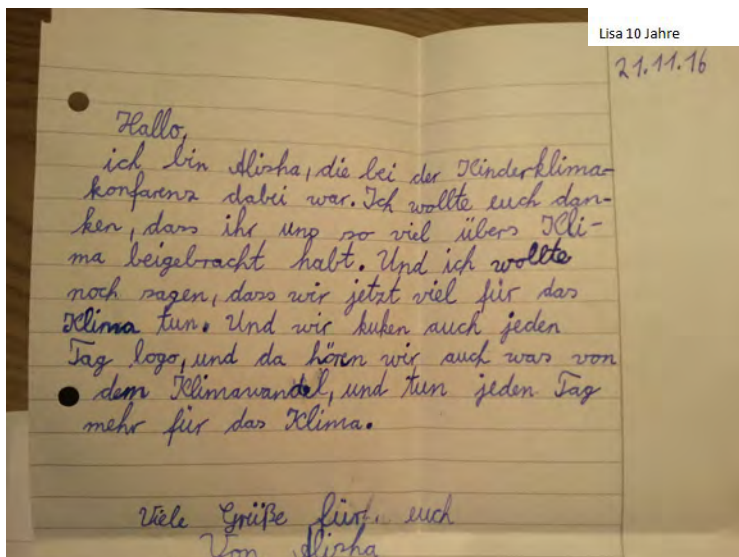 Lisa 10 Jahre
21.11.16
Hallo,
ich bin Alisha, die bei der Kinderklima-
konfarenz dabei war. Ich wollte euch dan-
ken, dass ihr uns so viel übers Kli-
ma beigebracht habt. Und ich wollte
noch sagen, dass wir jetzt viel für das
Klima tun. Und wir kuken auch jeden
Tag logo, und da hören wir auch was von
dem Klimawandel, und tun jeden Tag
mehr für das Klima.
Viele Grüße für euch
Von Alisha